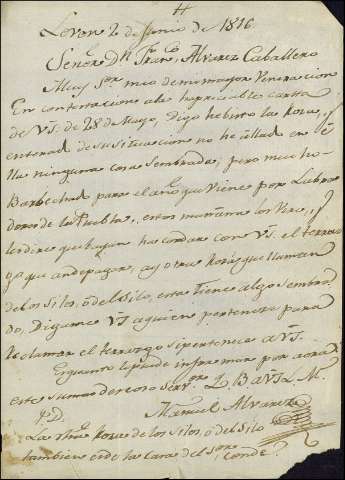 Levon 2 de Junio de 1816
Señor Dn Franco Alvarez Caballero
Muy Sor mio de mi mayor Veneracion
En contestacion a la apreciable carta
de VS. de 28 de Mayo, digo he visto las Rozas, y
enterad de su situacion no he allado en e
lla ninguna cosa sembrada, pero mucho
Barbechad para el año que viene por Labra
dores de la Puebla, estos mañana los Vere, y
les dire que bajen ha cordar con VS. el terraz
go que an de pagar, ay otra Roza que llaman
de los Silos, o del Silo, esta tiene algo sembra
do, Digame VS a quien pertenece para
reclamar el terrazgo si pertenece a VS.
es quanto puede informar por aora
este su mas deceoso Servor Q. B. a VS L. M.
Manuel Alvarez
P.D.
La tha Roza de los Silos, o del Silo
tambien es de la Casa del Sor Conde.